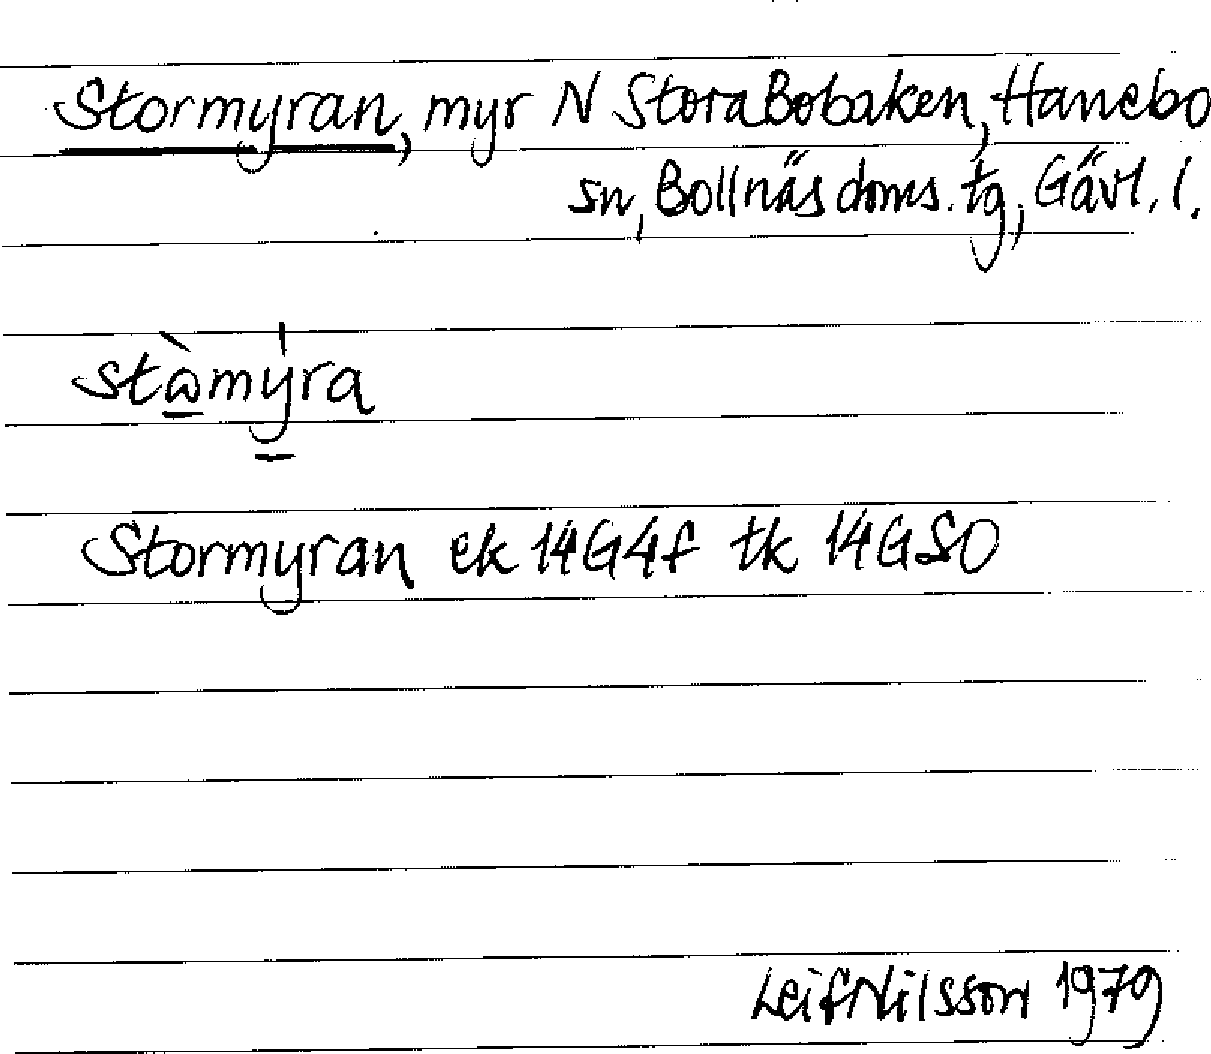 Stormyran, myr N Stora Bobaken, Hanebo
sn, Bollnäs doms. tg, Gävl. l.
Stormyran ek 14G4f tk 14GSO
Leif Nilsson 1979